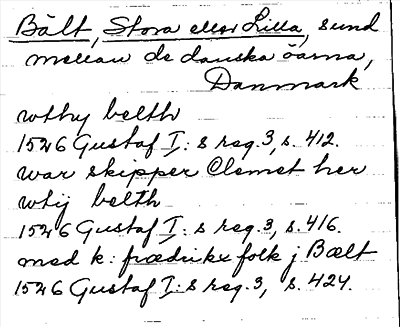 Bält, Stora eller Lilla, sund
mellan de danska öarna,
Danmark
wthy belth
1526 Gustaf I:s reg. 3, s. 412.
war skipper Clemet her
wtij belth
1526 Gustaf I:s reg. 3, s. 416.
med k: frædrikx folk j Bælt
1526 Gustaf I:s reg. 3, s. 424.